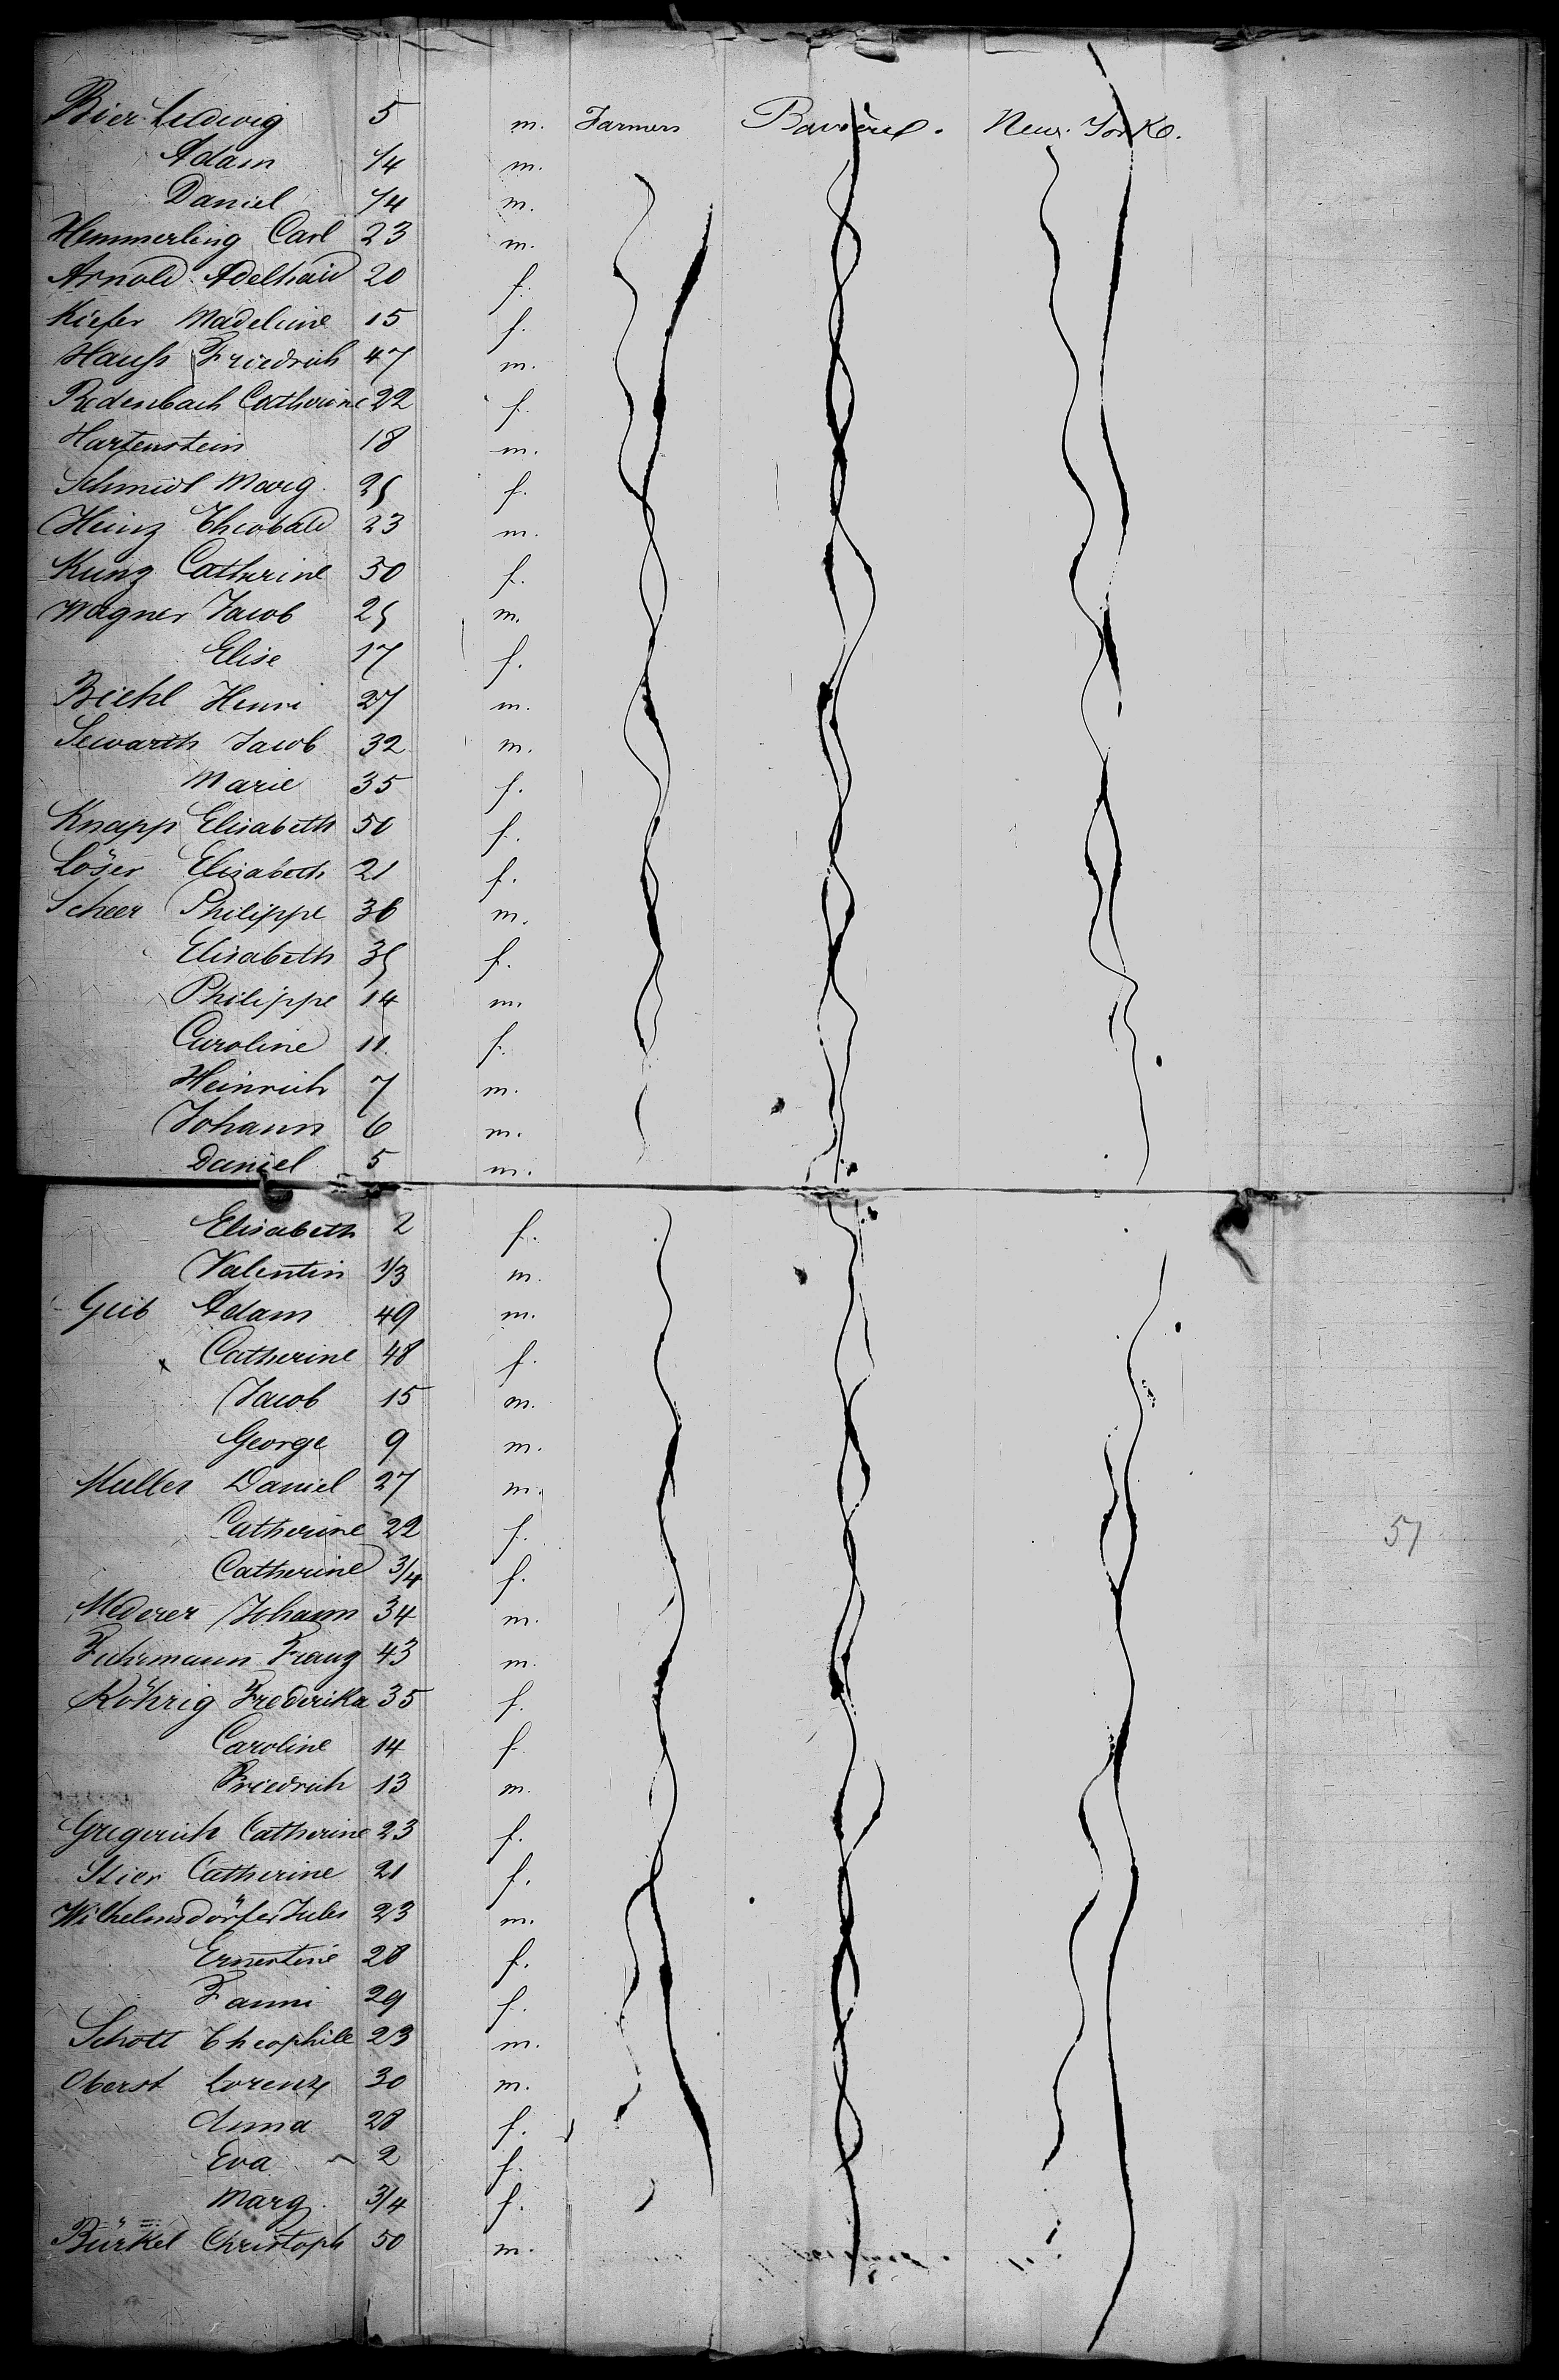 Bier Ludwig 5 m. Farmers Bavière. New. Yorke.
Adam 1/4 m.
Daniel 1/4 m.
Hemmerling Carl 23 m.
Arnold Adelhaid 20 f.
Kiefer Madeleine 15 f.
Hauss Friedrich 47 m.
Redenbach Catherine 22 f.
Hartenstein 18 m.
Schmidt Marg. 25 f.
Heinz Theobald 23 m.
Kunz Catherine 50 f.
Wagner Jacob 25 m.
Elise 17 f.
Biehl Henri 27 m.
Sewarth Jacob 32 m.
Marie 35 f.
Knapp Elisabeth 50 f.
Löser Elisabeth 21 f.
Scheer Philippe 36 m.
Elisabeth 35 f.
Philippe 14 m.
Caroline 11 f.
Heinrich 7 m.
Johann 6 m.
Daniel 5 m.
Elisabeth 2 f.
Valentin 1/3 m.
Geib Adam 49 m.
x Catherine 48 f.
Jacob 15 m.
George 9 m.
Muller Daniel 27 m.
Catherine 22 f.
57
Catherine 3/4 f.
Mederer Johann 34 m.
Fuhrmann Franz 43 m.
Röhrig Frederika 35 f.
Caroline 14 f
Friedrich 13 m.
Gregerich Catherine 23 f.
Stier Catherine 21 f.
Wilhelmsdörfer Jules 23 m.
Ernestine 28 f.
Fanni 29 f.
Schott Theophile 23 m.
Oberst Lorenz 30 m.
Anna 28 f.
Eva 2 f.
Marg. 3/4 f.
Bürkel Christoph 50 m.